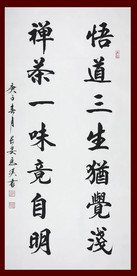 悟道三生猶覺淺
禪茶一味竟自明
庚子春月